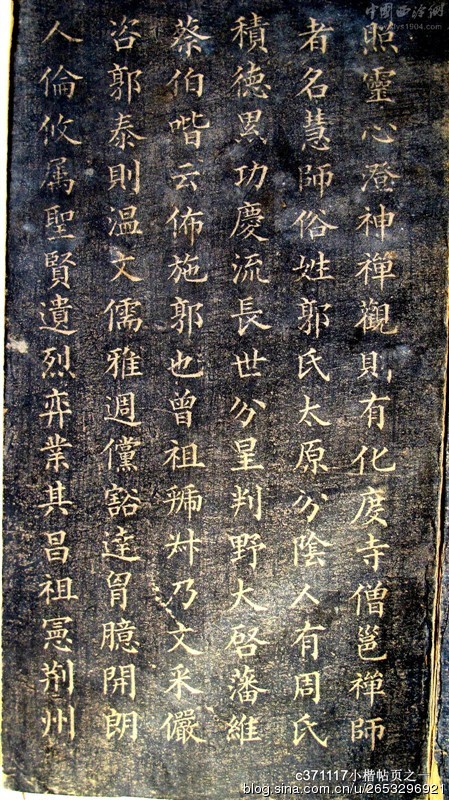 照靈心澄神禪觀則有化度寺僧邕禪師
者名慧師俗姓郭氏太原分陰人有周氏
積德累功慶流長世分星判野大啓藩維
蔡伯喈云佈施郭也曾祖號叔乃文采儼
咨郭泰則温文儒雅週儻豁達胷臆開朗
人倫攸属聖賢遺烈弈業其昌祖憲荆州
中國西泠網
c371117小楷帖页之一
blog.sina.com.cn/u/2653296921